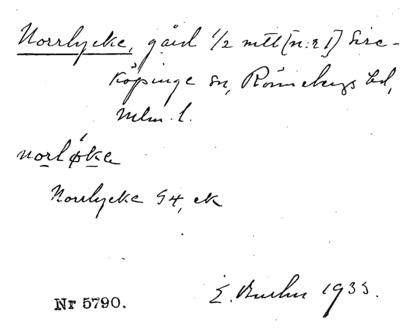 Norrlycke, gård 1/2 mtl [n:r 1] Sire-
köpinge sn, Rönnebergs hd,
Mlm. l.
norløke
Norrlycke G4, ek
Nr 5790.
E. 1933.